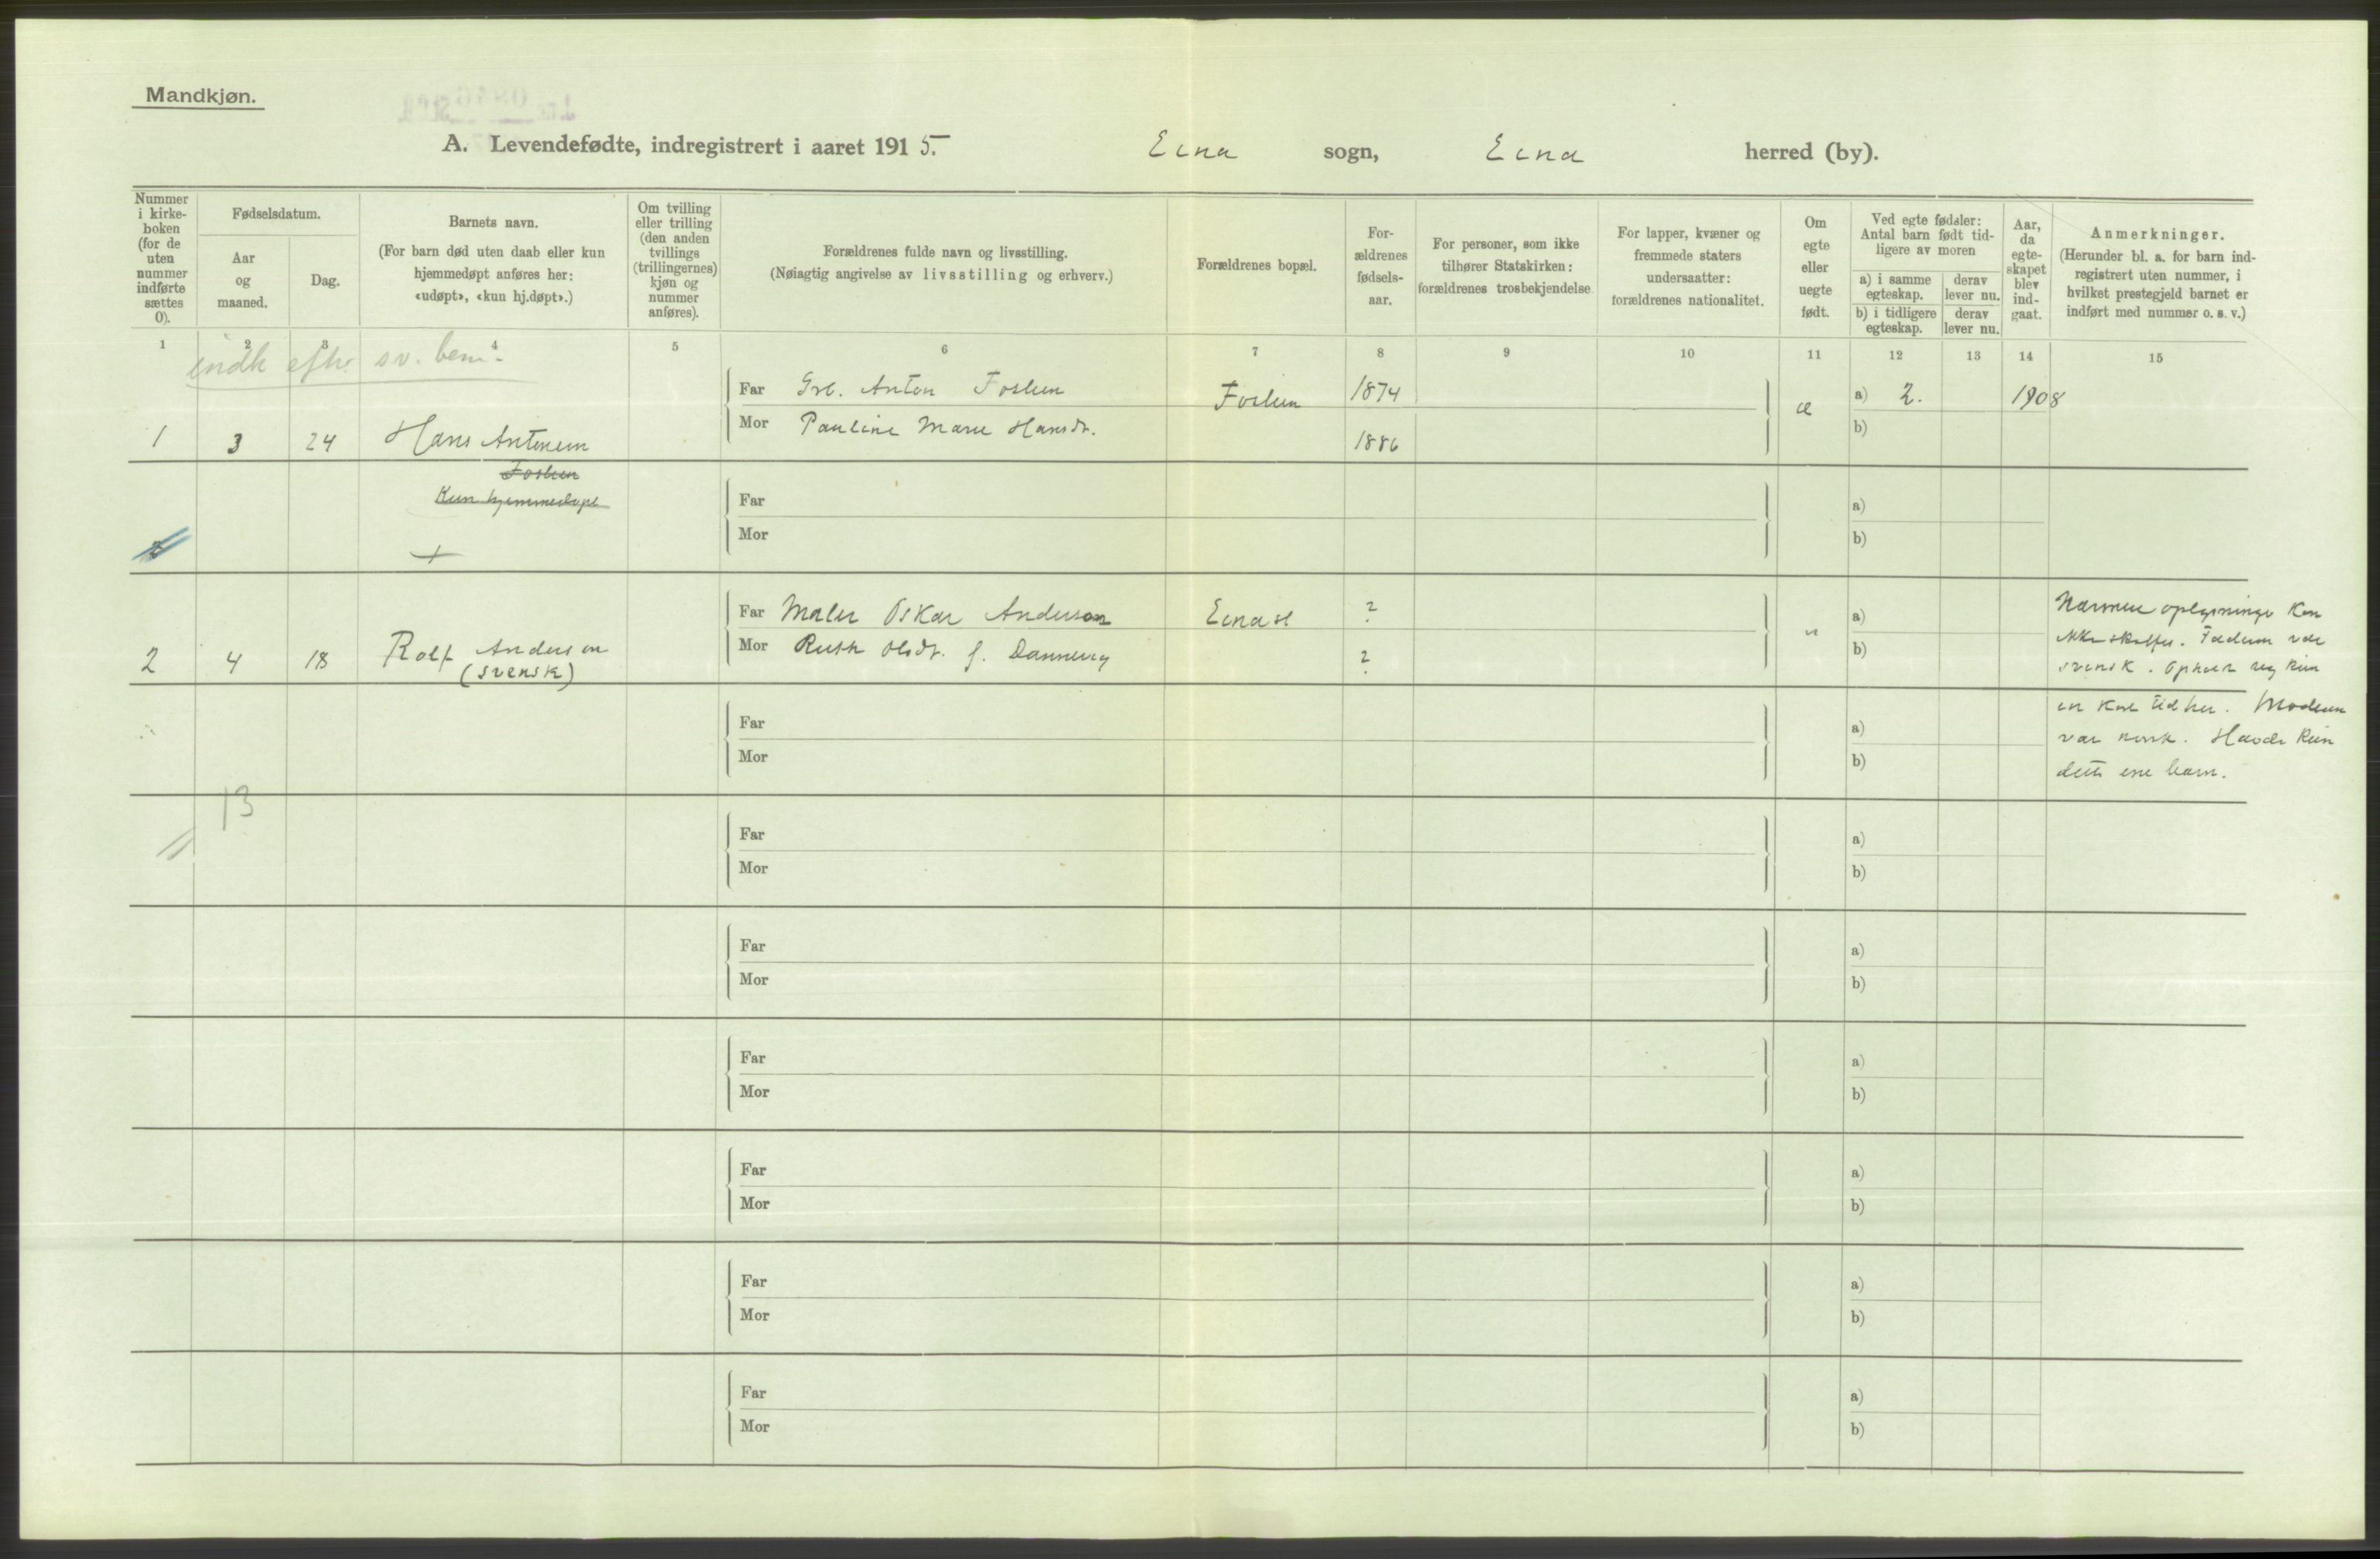 Mandkjøn.
A. Levendefødte, indregistrert i aaret 1915. Eina sogn, Eina herred (by).
Nummer i kirkeboken (for de uten nummer indførte sættes 0).
Fødselsdatum.
Aar og maaned.
Dag.
Barnets navn.
(For barn død uten daab eller kun hjemmedøpt anføres her: «udøpt», «kun hj.døpt».)
Om tvilling eller trilling (den anden tvillings (trillingernes) kjøn og nummer anføres).
Forældrenes fulde navn og livsstilling.
(Nøiagtig angivelse av livsstilling og erhverv.)
Forældrenes bopæl.
For-ældrenes fødsels-aar.
For personer, som ikke tilhører Statskirken: forældrenes trosbekjendelse.
For lapper, kvæner og fremmede staters undersaatter: forældrenes nationalitet.
Om egte eller uegte født.
Ved egte fødsler: Antal barn født tid-ligere av moren
a) i samme egteskap.
derav lever nu.
b) i tidligere egteskap.
derav lever nu.
Aar, da egte-skapet blev ind-gaat.
Anmerkninger.
(Herunder bl. a. for barn ind-registrert uten nummer, i hvilket prestegjeld barnet er indført med nummer o. s. v.)
1 2 3 4 5 6 7 8 9 10 11 12 13 14 15
indk efte sv. bem.
Far Grb. Anton Foslien Foslien 1874 æ a) 2. 1908
Mor Pauline Marie Hansdr. 1886 b)
1 3 24 Hans Antonsen
Foslien
Kun hjemmedøpt
Far a)
Mor b)
2
Far Maler Oskar Anderson Eina st ? u a)
Mor Ruth Olsdr. f. Dannevig ? b)
2 4 18 Rolf Anderson
(svensk)
Nærmere oplysninger kan
ikke skaffes. Faderen var
svensk. Opholdt seg kun
en kort tid her. Moderen
var norsk. Havde kun
dette ene barn.
Far a)
Mor b)
13
Far a)
Mor b)
Far a)
Mor b)
Far a)
Mor b)
Far a)
Mor b)
Far a)
Mor b)
Far a)
Mor b)